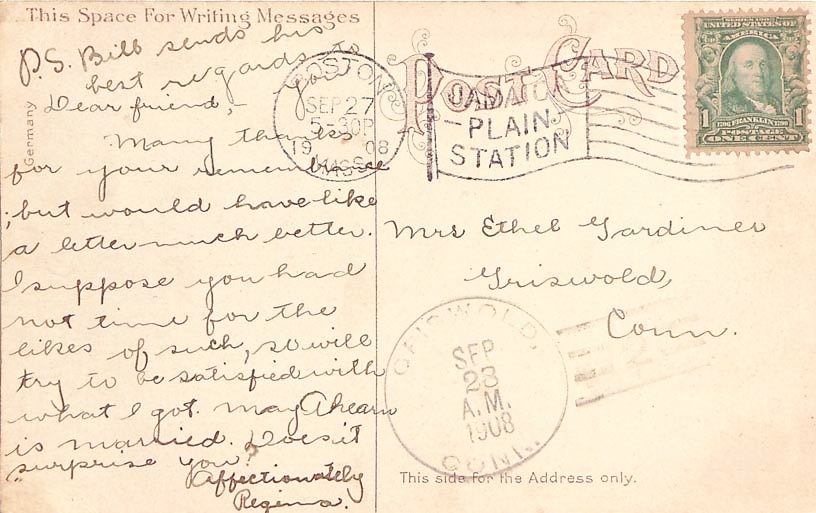 This Space For Writing Messages
P.S. Bill sends his
best regards to
you
Dear friend,-
Many thanks
for your remembrance
, but would have like
a letter much better.
I suppose you had
not time for the
likes of such, so will
try to be satisfied with
what I got. May Ahearn
is married. Does it
surprise you?
Affectionately
Regina.
Germany
POST CARD
BOSTON
SEP 27
5-30P
19 08
MASS.
JAMAICA
PLAIN
STATION
SERIES 1902
UNITED STATES OF
AMERICA
1 1
1706 FRANKLIN 1790
POSTAGE
ONE CENT
Mrs Ethel Gardiner
Griswold,
Conn.
GRISWOLD,
SEP
28
A.M.
1908
CONN.
This side for the Address only.